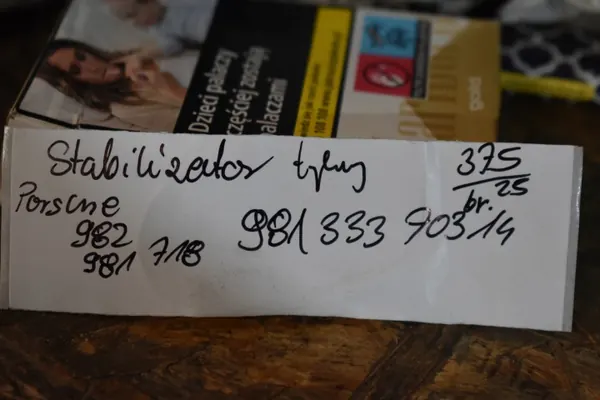 Dzieci palaczy
częściej zostają
palaczami
gold
Stabilizator tylny
375
br. 25
Porsche
982
981 718
981 333 903 14